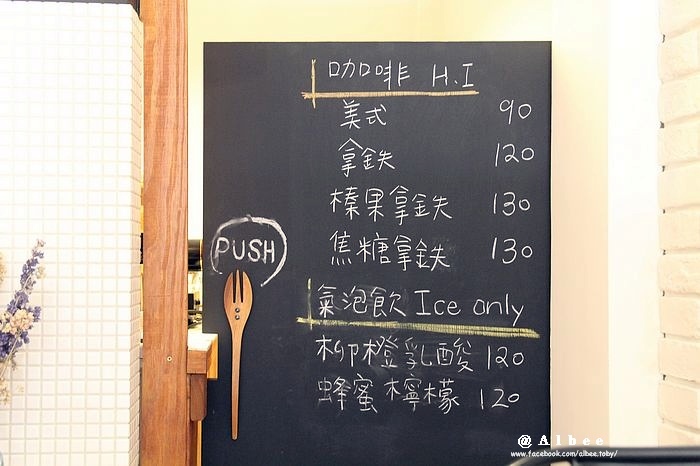 咖啡 H.I
美式 90
拿鉄 120
榛果拿鉄 130
焦糖拿鉄 130
PUSH
氣泡飲 Ice only
柳橙乳酸 120
蜂蜜檸檬 120
@ Albee
www.facebook.com/albee.toby/